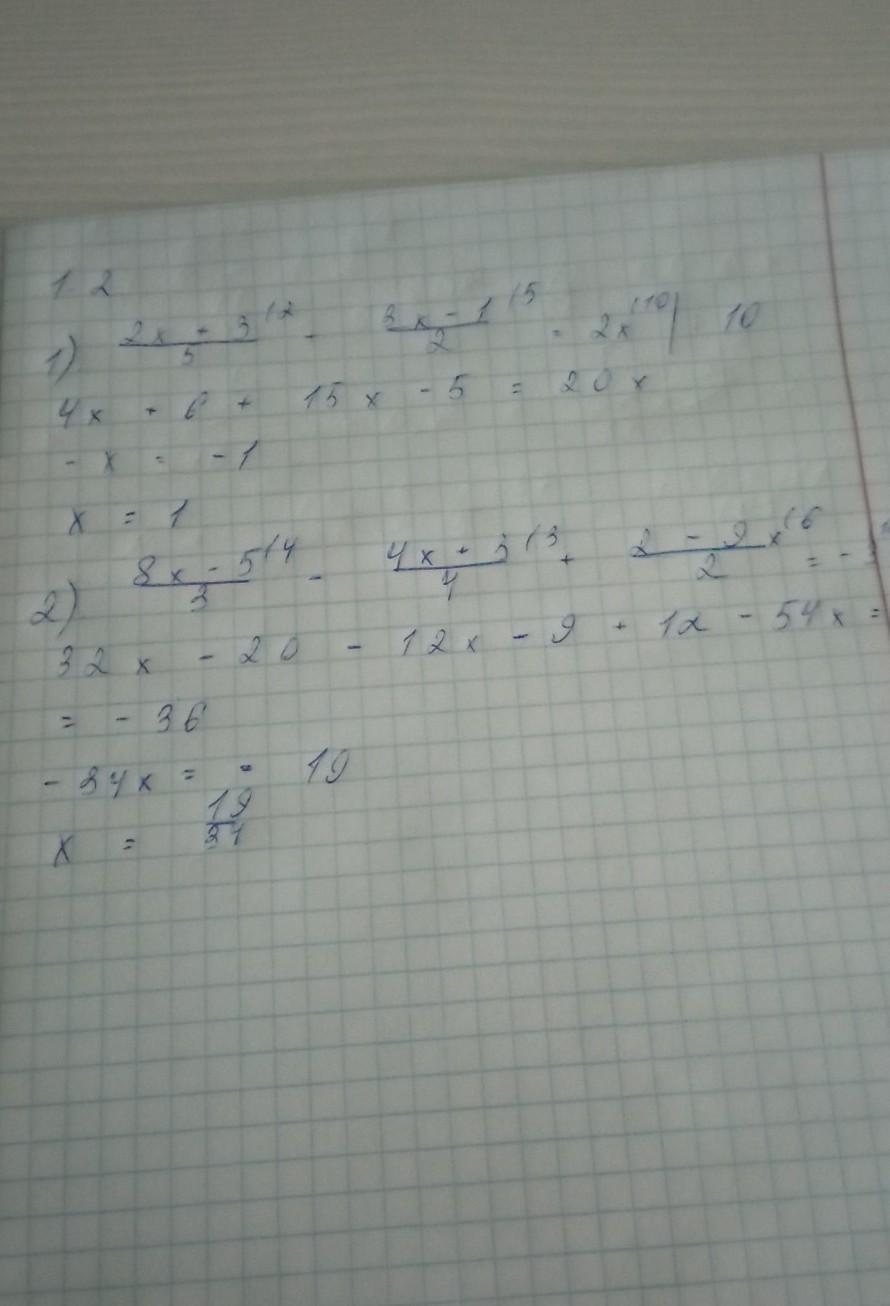 1 2
1) (2x + 3)/5 ^(2 - (3x - 1)/2 ^(5 = 2x^(10 | 10
4x + 6 + 15x - 5 = 20x
- x = -1
x = 1
2) (8x - 5)/3 ^(4 - (4x + 3)/4 ^(3 + (2 - 9x)/2 ^(6 = - 3
32x - 20 - 12x - 9 + 12 - 54x =
= - 36
- 34x = - 19
x = 19/34